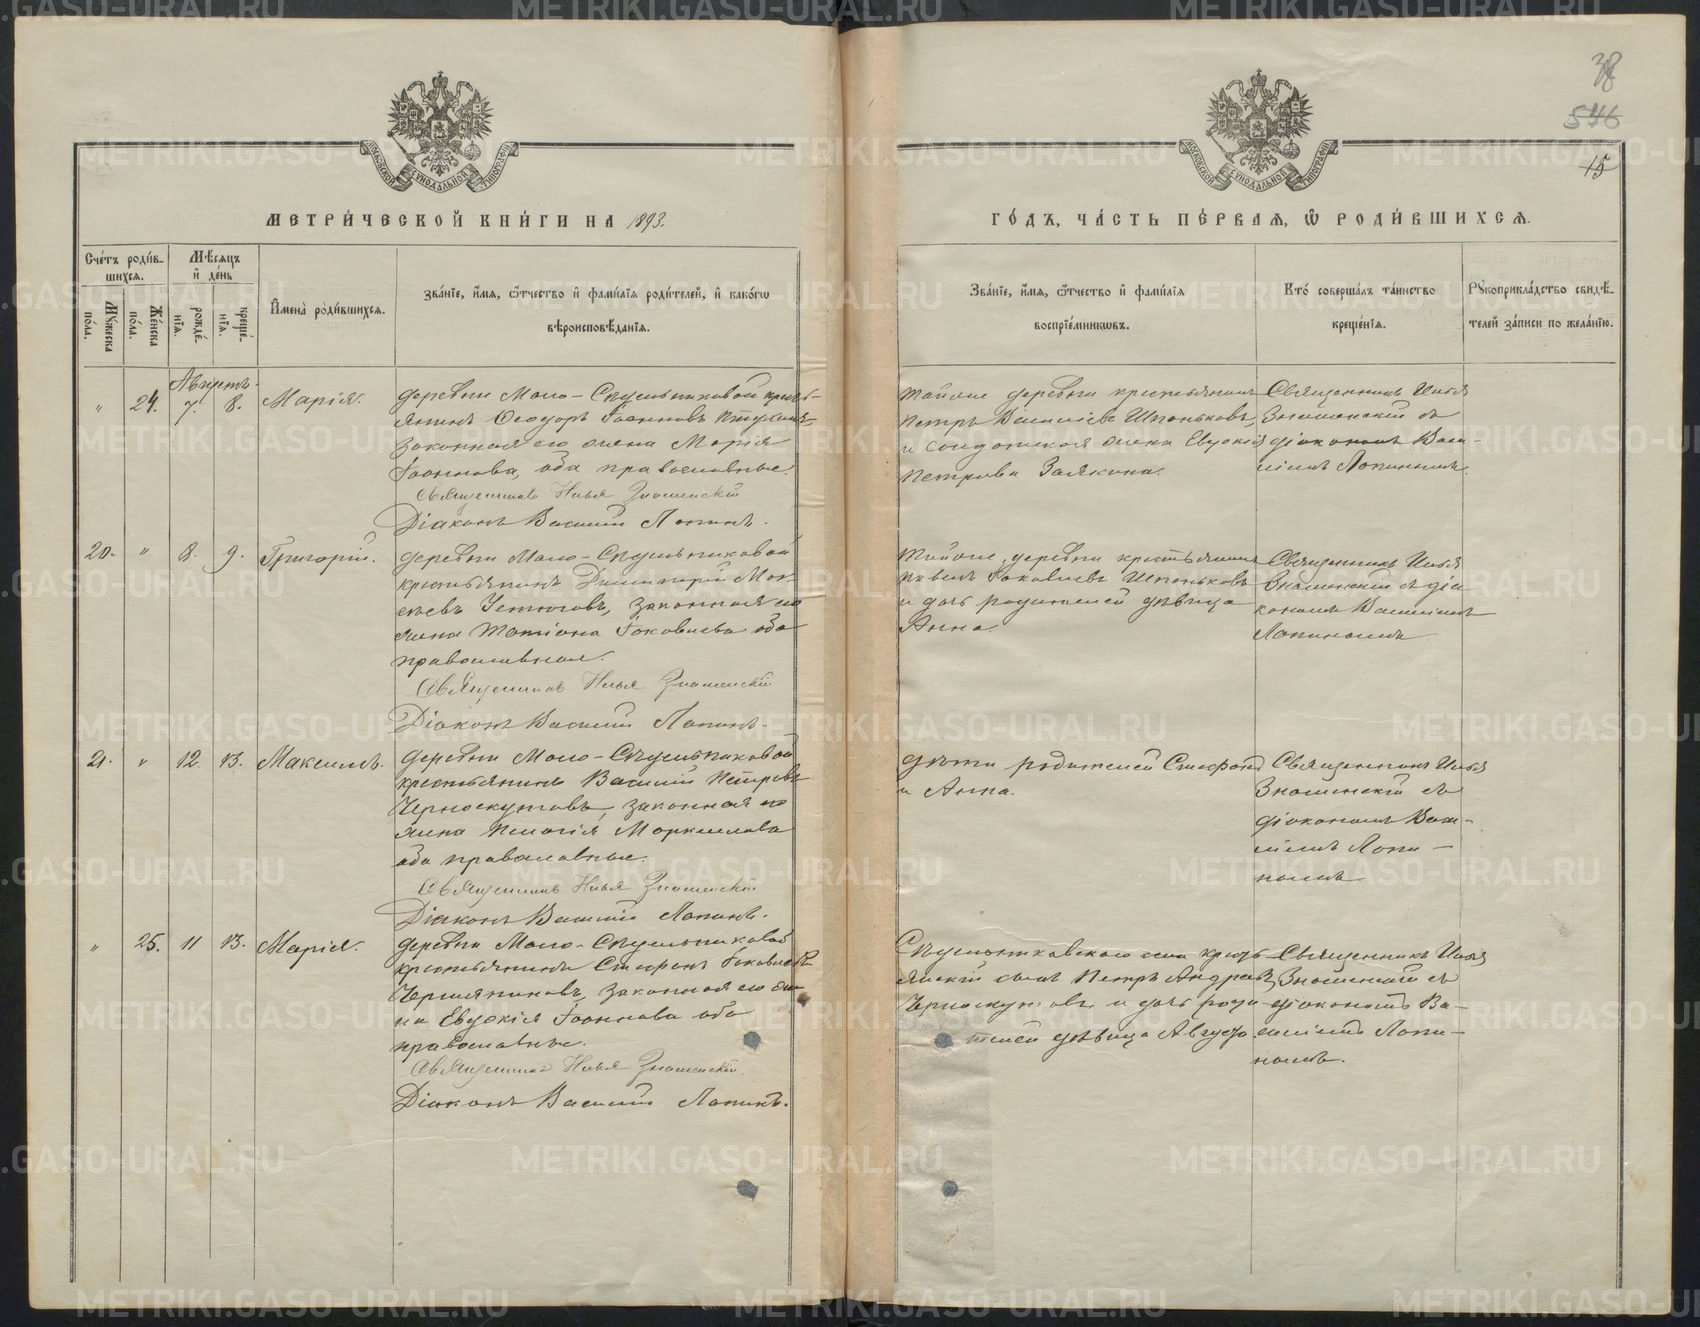 38
546
15
МЕТРИ́ЧЕСКОЙ КНИ́ГИ НА 1893.
ГО́ДЪ, ЧА́СТЬ ПЕ́РВАЯ, Ѽ РОДИ́ВШИХСЯ.
Сче́тъ роди́в-
шихся.
Мꙋжеска по́ла.
Же́нска по́ла.
Мѣ́сяцъ
и҆ де́нь
рожде́-
нїѧ.
креще́-
нїѧ.
И҆мена̀ роди́вшихся.
Зва́нїе, и҆́мя, ѻ҆́тчество и҆ фами́лїя роди́телей, и҆ како́гѡ
вѣроисповѣ́данїя.
Зва́нїе, и҆́мя, ѻ҆́тчество и҆ фами́лїя
воспрїе́мникѡвъ.
Кто̀ соверша́лъ та́инство
креще́нїя.
Рꙋкоприкла́дство свидѣ́-
телей за́писи по жела́нїю.
Августъ.
" 24. 7. 8. Марія.
деревни Мало-Скутельниковой кресть-
янинъ Ѳеодоръ Іоанновъ
законная его жена Марія
Іоаннова, оба православные.
Священникъ Илья Знаменскій
Діаконъ Василій Лопинъ.
тойже деревни крестьянинъ
Петръ Василіевъ Шпоньковъ,
и солдатская жена Евдокія
Петрова Заякина.
Священникъ Илья
Знаменскій съ
діакономъ Васи-
ліемъ Лопинымъ.
20. " 8. 9. Григорій.
деревни Мало-Скутельниковой
крестьянинъ Димитрій Мои-
сеевъ Устюговъ, законная его
жена Татіана Іаковлева оба
православные.
Священникъ Илья Знаменскій
Діаконъ Василій Лопинъ.
тойже деревни крестьянинъ
Павелъ Іаковлевъ Шпоньковъ
и дочь родителей дѣвица
Анна.
Священникъ Илья
Знаменскій съ діа-
кономъ Василіемъ
Лопинымъ.
21. " 12. 13. Максимъ.
деревни Мало-Скутельниковой
крестьянинъ Василій Петровъ
Черноскутовъ, законная его
жена Пелагія Маркеллова
оба православные.
Священникъ Илья Знаменскій
Діаконъ Василій Лопинъ.
дѣти родителей Стефанъ
и Анна.
Священникъ Илья
Знаменскій съ
діакономъ Васи-
ліемъ Лопи-
нымъ.
" 25. 11 13. Марія.
деревни Мало-Скутельниковой
крестьянинъ Стефанъ Іаковлевъ
законная его же-
на Евдокія Іоаннова оба
православные.
Священникъ Илья Знаменскій.
Діаконъ Василій Лопинъ.
села кресть-
янскій сынъ Петръ Андреевъ
Черноскутовъ и дочь роди-
телей дѣвица Августа.
Священникъ Илья
Знаменскій съ
діакономъ Ва-
силіемъ Лопи-
нымъ.
METRIKI.GASO-URAL.RU